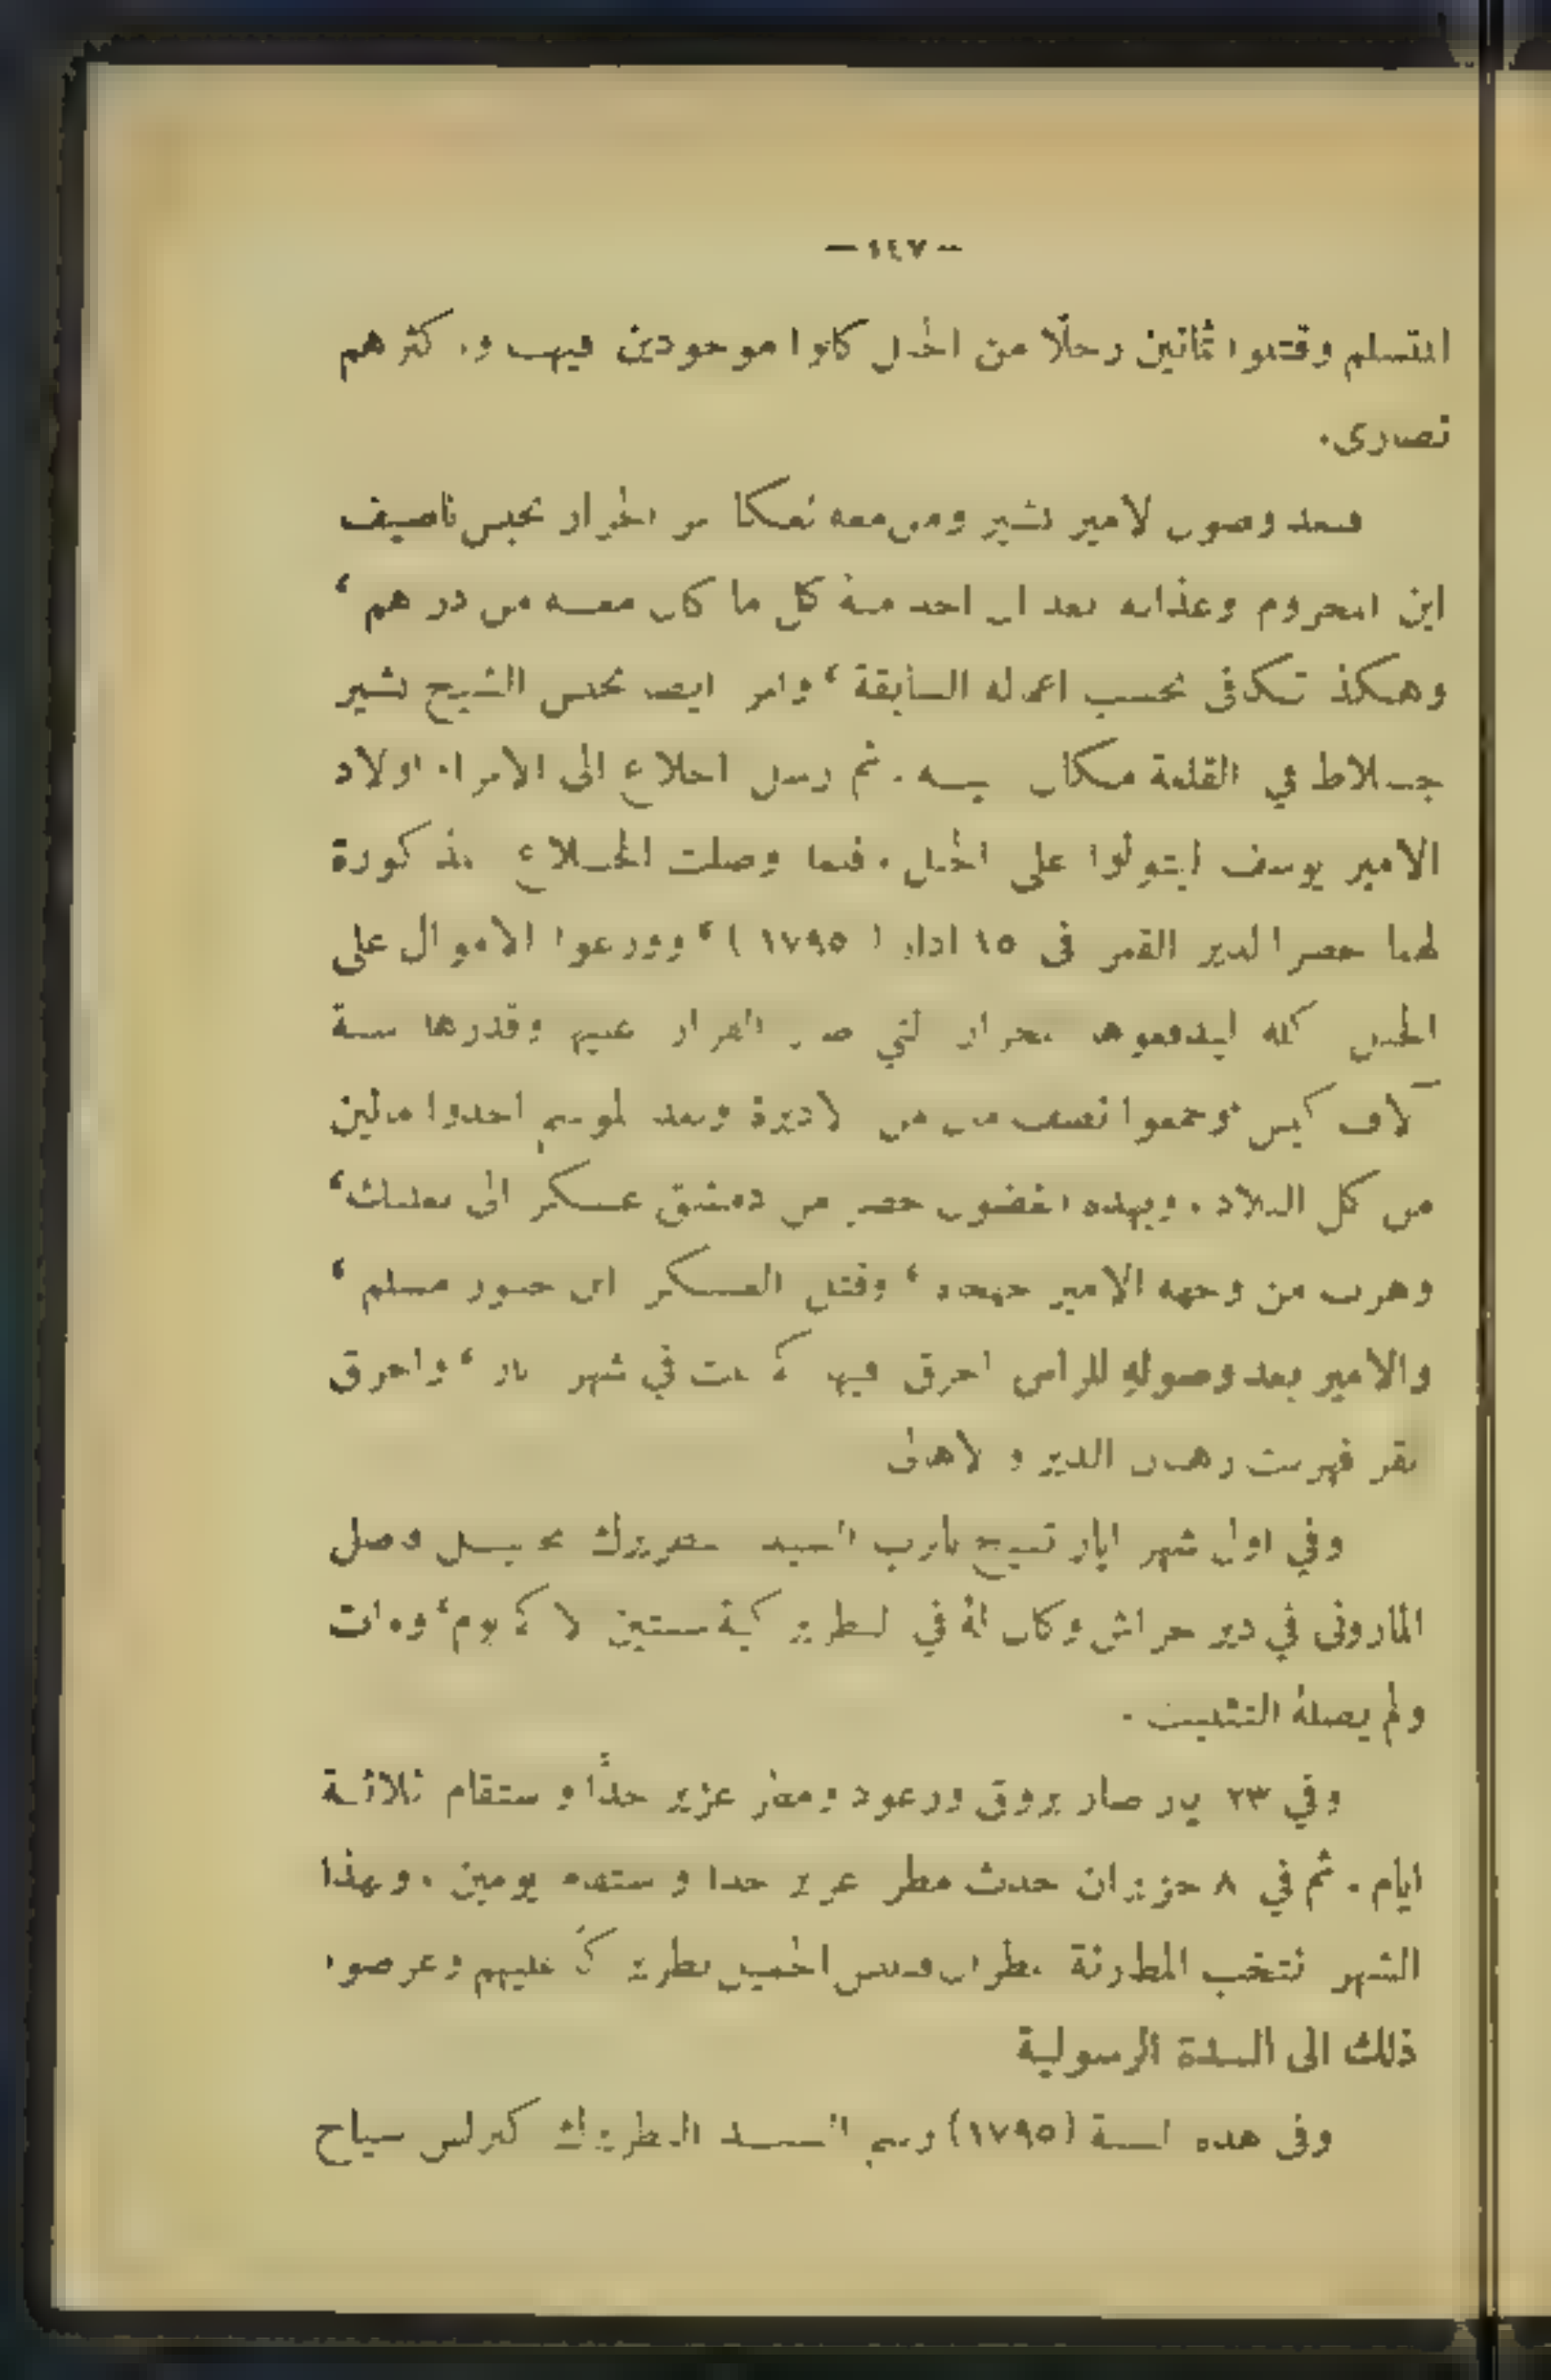 — ١٤٧ —
المتسلم وقتلوا ثمانين رجلًا من الجبل كانوا موجودين فيها واكثرهم
نصارى.
فبعد وصول الامير بشير ومن معه لعكا امر الجزار بحبس ناصيف
ابن المحروم وعذابه بعد ان اخذ منهُ كل ما كان معه من دراهم ،
وهكذا تكافى بحسب اعماله السابقة ، وامر ايضا بحبس الشيخ بشير
جنبلاط في القلعة مكان ابيه . ثم ارسل اخلاع الى الامراء اولاد
الامير يوسف ليتولوا على الجبل . فلما وصلت الخلاع المذكورة
لهما حضرا لدير القمر في ١٥ اذار ( ١٧٩٥ ) ، ووزعوا الاموال على
الجبل كله ليدفعوها للجزار التي صار القرار عليها وقدرها ستة
آلاف كيس وجمعوا نصف مال من الاديرة وبعد الموسم اخذوا مالين
من كل البلاد . وبهذه الغضون حضر من دمشق عسكر الى بعلبك ،
وهرب من وجهه الامير جهجاه ، وقتل العسكر ابن مسلم ،
والامير بعد وصولهِ للراس احرق فيها في شهر ايار ، واحرق
رهبان الدير والاهالي
وفي اول شهر ايار تنيح بالرب السيد البطريرك فاضل
الماروني في دير حراش وكان لهُ في البطريركية سنتين الا يوم ، ومات
ولم يصلهُ التثبيت .
وفي ٢٣ ايار صار بروق ورعود ومطر عزيز جدًا واستقام ثلاثة
ايام . ثم في ٨ حزيران حدث مطر عزيز جدا واستقام يومين . وبهذا
الشهر انتخب المطارنة مطران الجميل بطريركًا عليهم وعرضوا
ذلك الى السدة الرسولية
وفي هذه السنة (١٧٩٥) رسم السيد البطريرك كيرلس سياج